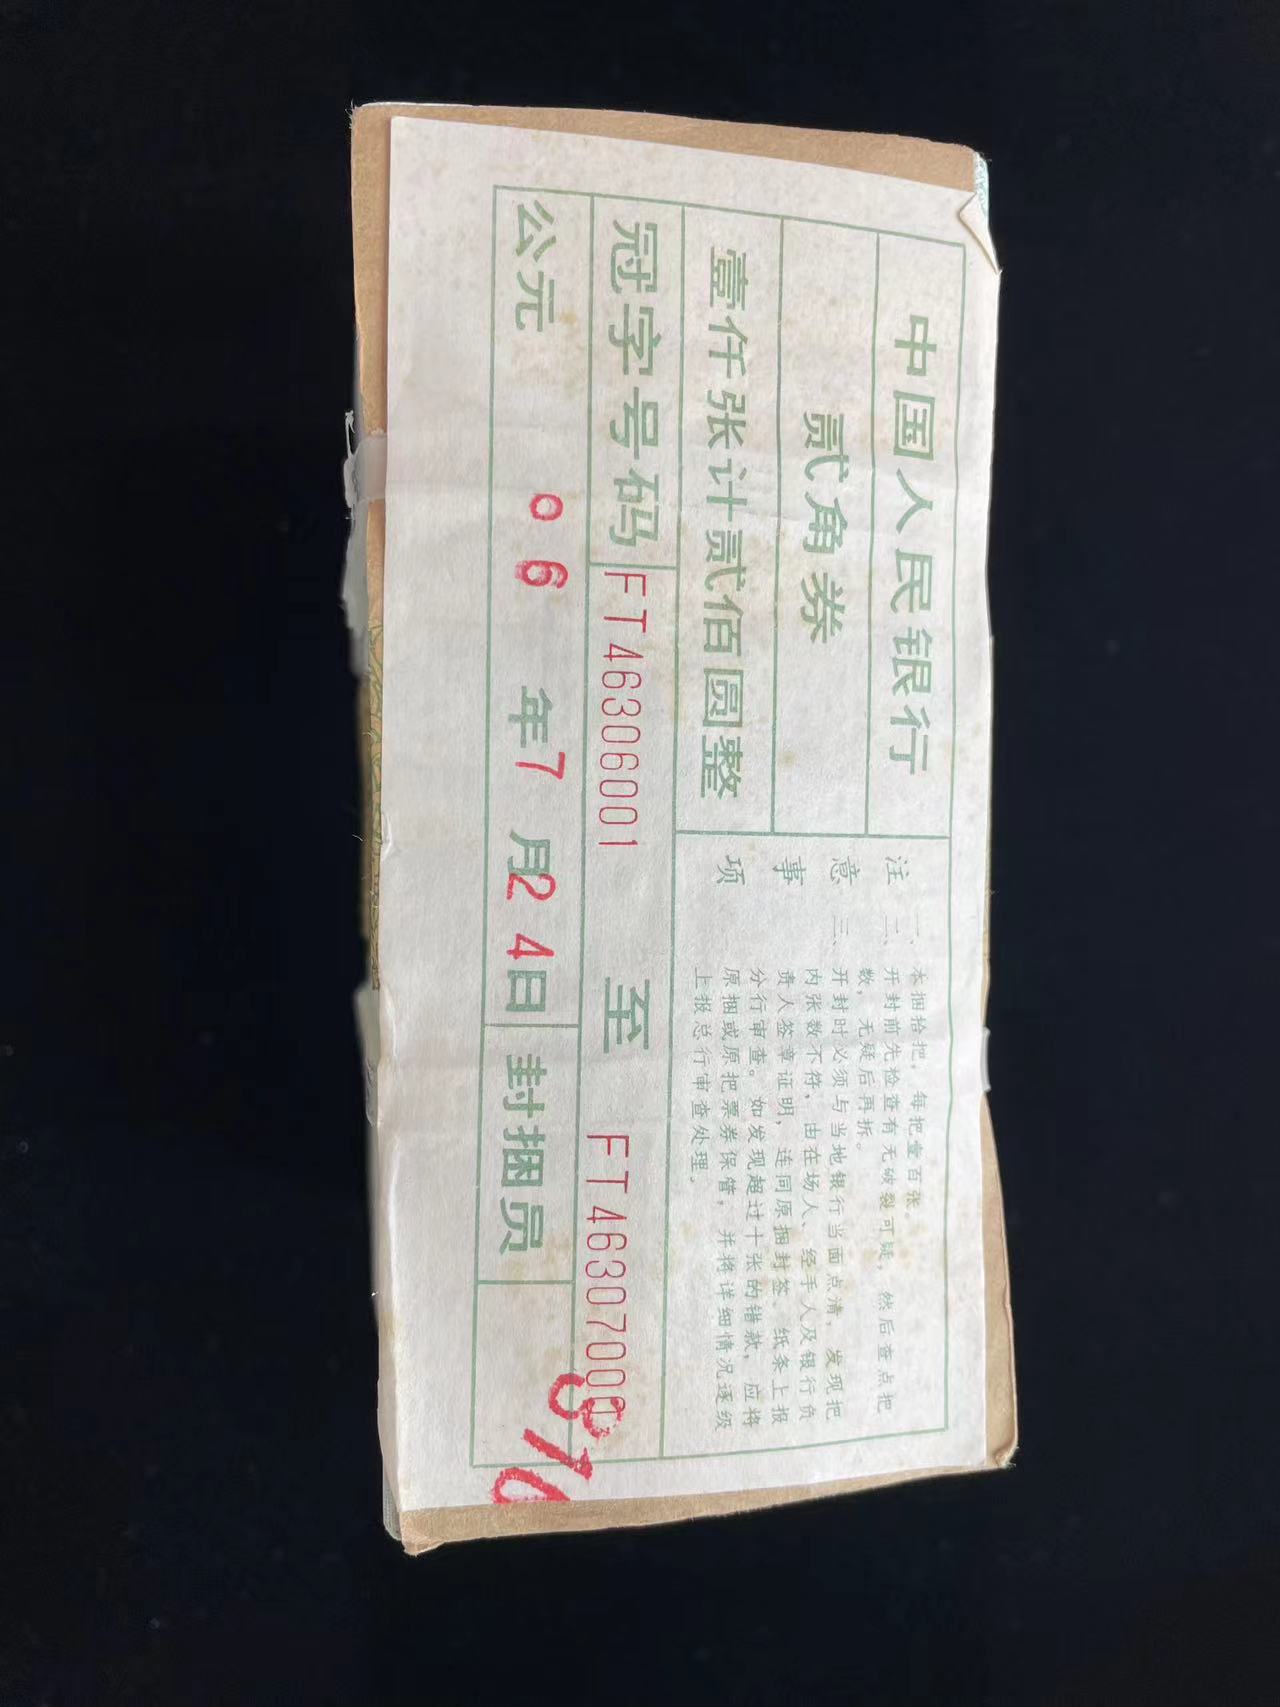 中国人民银行
贰角券
壹仟张计贰佰圆整
注意事项
一、本捆拾把，每把壹百张。
二、开封前先检查有无破裂可疑，然后查点把
数，无疑后再拆。
三、开封时必须与当地银行当面点清，发现把
内张数不符，由在场人、经手人及银行负
责人签章证明，连同原捆封签、纸条上报
分行审查。如发现超过十张的错款，应将
原捆或原把票券保管，并将详细情况逐级
上报总行审查处理。
冠字号码 FT46306001 至 FT46307000
公元 06 年 7 月 24 日 封捆员